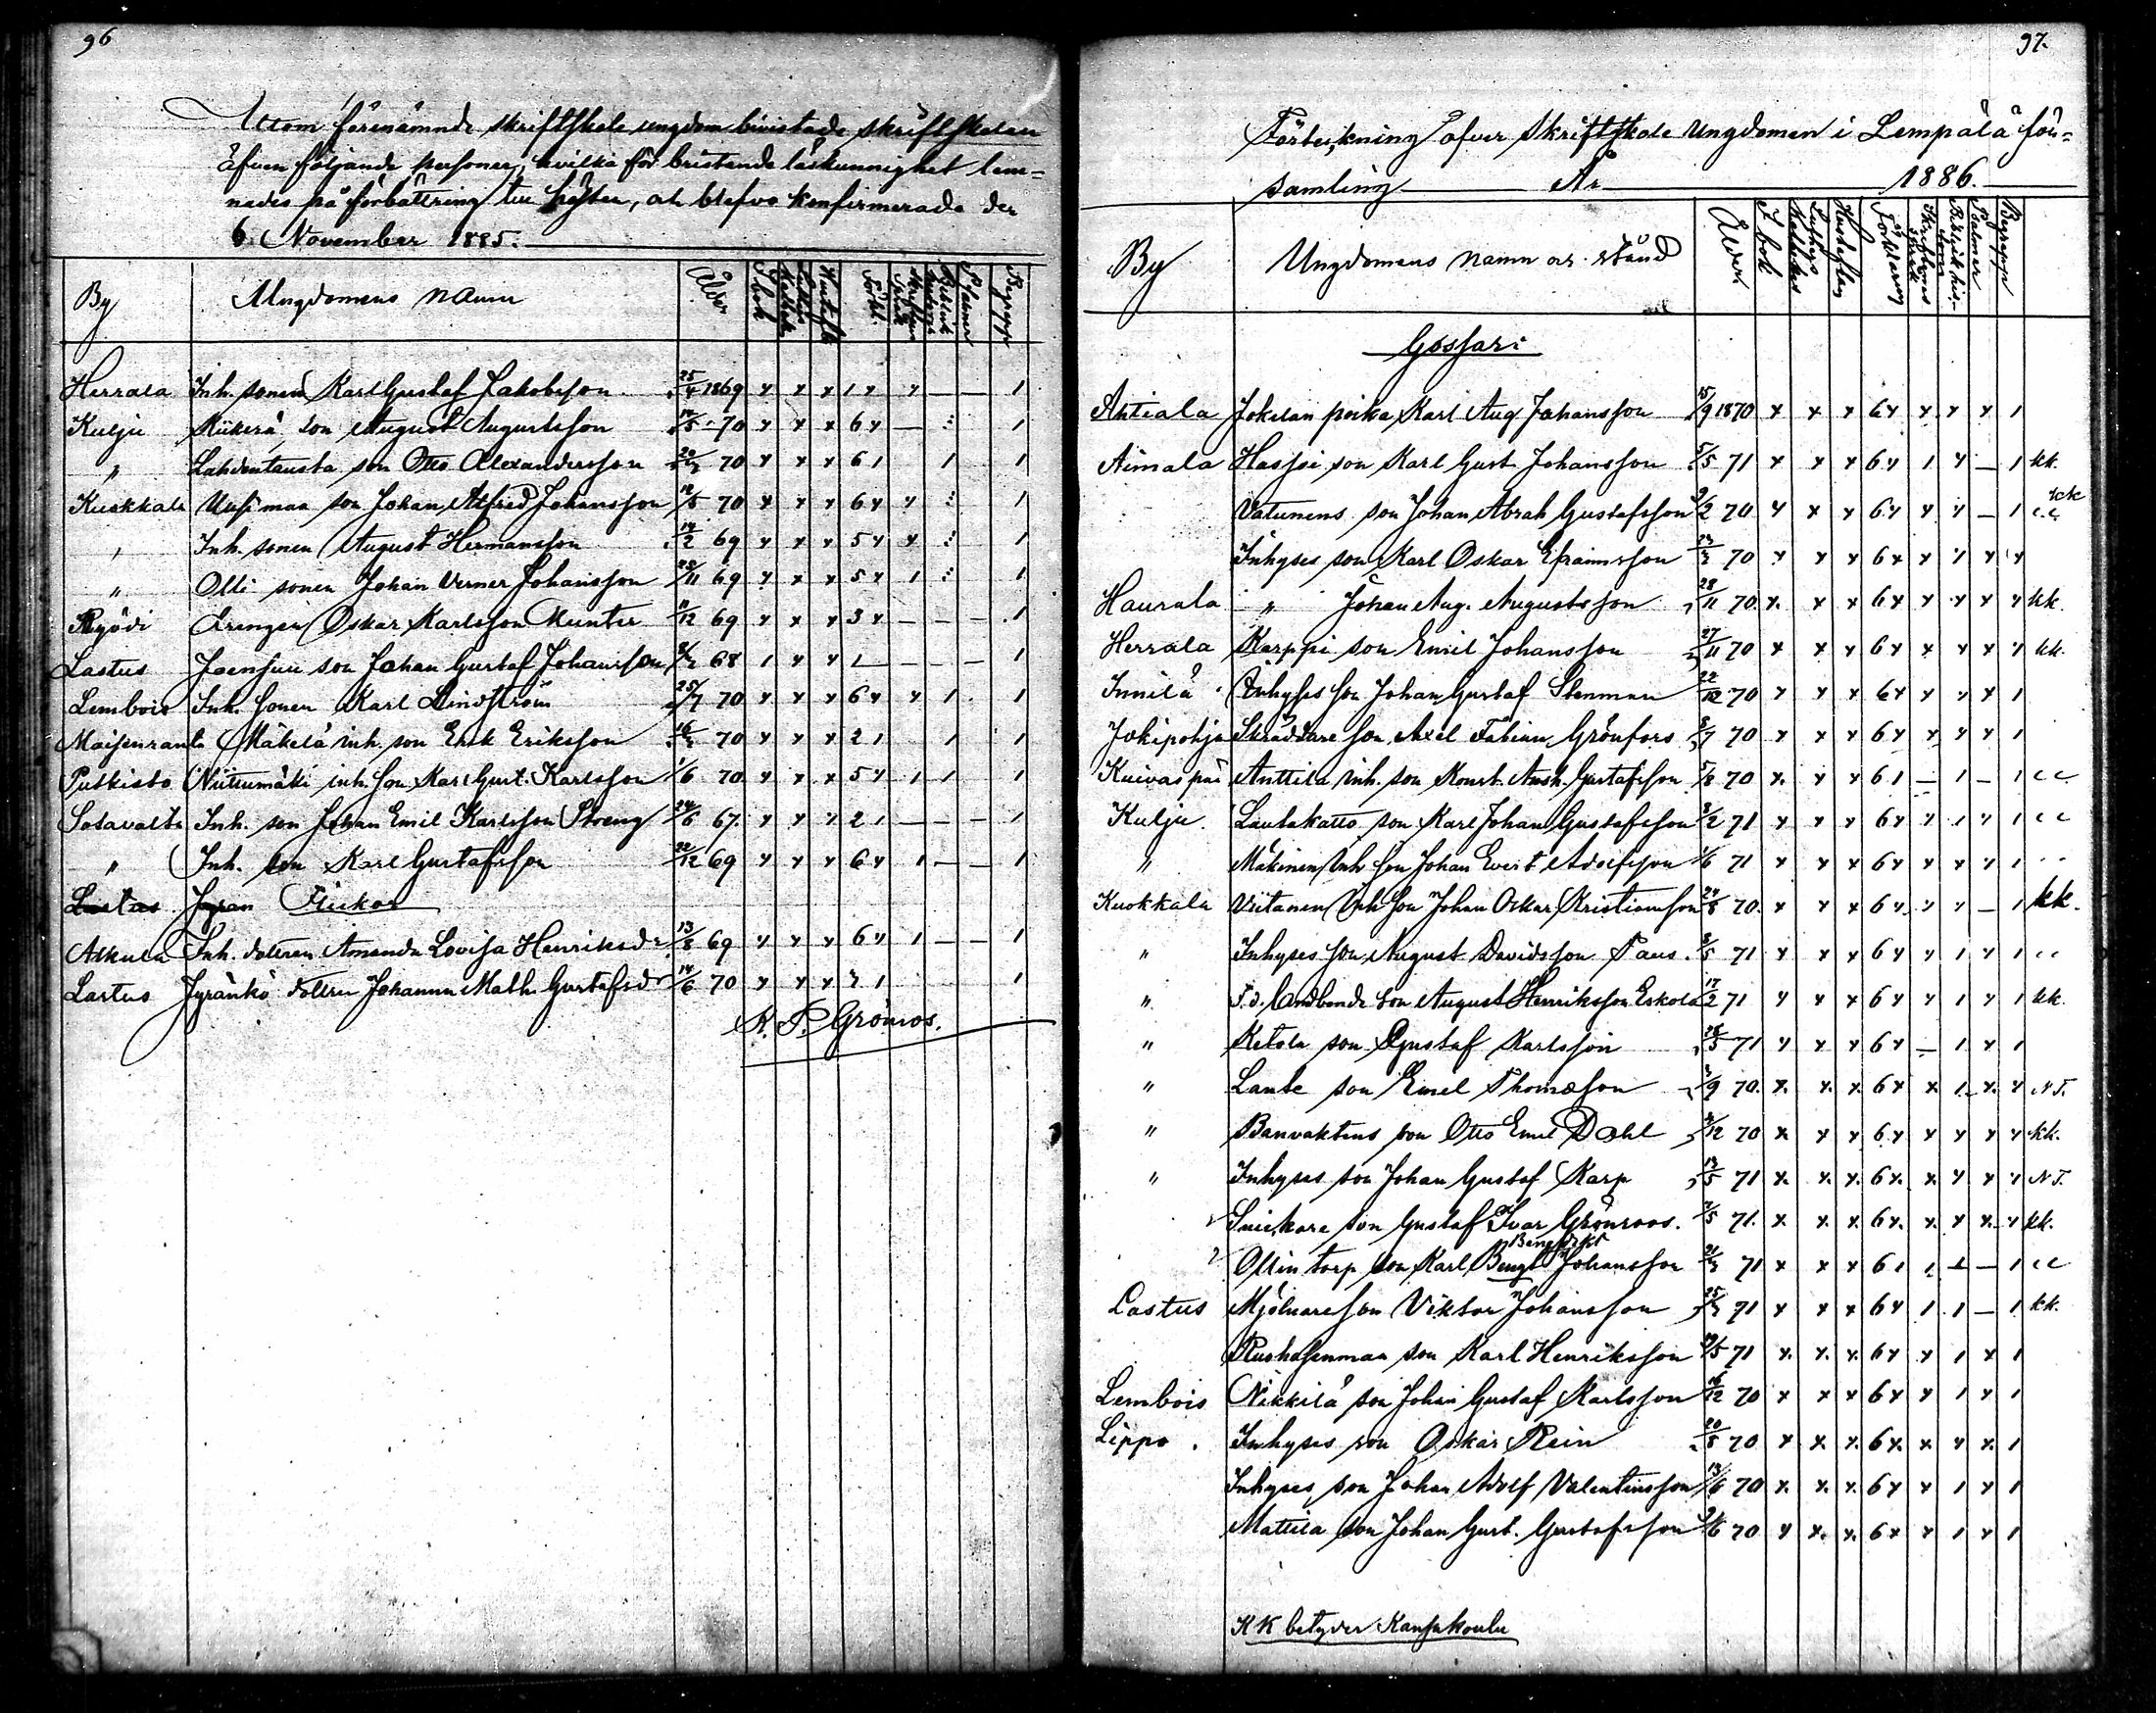 96
Utom förenämnde skriftskole ungdom bivistade skriftskolan
äfven följande personer, hvilka för bristande läskunnighet lem-
nades på förbättring till hösten, och blefvo konfirmerade den
6 November 1885.
By Ungdomens namn Ålder I bok Förkl. Psalmer Begrepp
Herrala Inh. sonen Karl Gustaf Jakobsson 25/4 1869 x x x 1 x x — — 1
Kulju son August Augustsson 70 x x x 6 x — 1
" Lahdentausta son Otto Alexandersson 70 x x x 6 1 1 1
Kuokkala Uusimaa son Johan Alfred Johansson 70 x x x 6 x x 1
" Inh. sonen August Hermansson 69 x x x 5 x x 1
" Olli sonen Johan Verner Johansson 69 x x x 5 x 1 1
Ryödi Oskar Karlsson Munter 11/12 69 x x x 3 x — — — 1
Lastus Joensuu son Johan Gustaf Johansson 68 1 x x 1 — — — — 1
Lembois Inh. sonen Karl Lindström 25/7 70 x x x 6 x x 1 1
Maisenranta Mäkelä inh. son Erik Eriksson 70 x x x 2 1 1 1
Putkisto Niittumäki inh. son Karl Gust. Karlsson 1/6 70 x x x 5 x 1 1 1
Sotavalta Inh. son Johan Emil Karlsson Streng 24/6 67. x x x 2 1 — — — 1
" Inh. son Karl Gustafsson 22/12 69 x x x 6 x 1 — — 1
Lastus Flickor
Inh. dottren Amanda Lovisa Henriksdr 13/8 69 x x x 6 x 1 — — 1
Lastus Jyränkö dottren Johanna Math. Gustafsdr 14/6 70 x x x 1 1
97.
Förteckning öfver Skriftskole Ungdomen i Lempälä för-
samling — År — 1886.
By Ungdomens namn och stånd Ålder I bok Katekes Luthers Hustaflan Förklaring Psalmer Begrepp
Gossar:
Ahtiala Jokelan poika Karl Aug Johansson 15/9 1870 x x x 6 x x x x 1
Aimala Hassi son Karl Gust Johansson 5/5 71 x x x 6 x 1 x — 1 kk.
Vatunens son Johan Abrah Gustafsson 9/2 70 x x x 6 x x x — 1 kk
Inhyses son Karl Oskar Efraimsson 70 x x x 6 x x x x x
Haurala " Johan Aug. Augustsson 28/11 70. x x x 6 x x x x x kk.
Herrala Karppi son Emil Johansson 27/11 70 x x x 6 x x x x x kk.
Innilä Inhyses son Johan Gustaf Stenman 22/12 70 x x x 6 x x x x 1
Jokipohja Skräddare son Axel Fabian Grönfors 70 x x x 6 x x x x 1
Kuivaspää Anttila inh. son Konst. Gustafsson 5/8 70 x x x 6 1 — 1 — 1
Kulju Lautakatto son Karl Johan Gustafsson 71 x x x 6 x x 1 x 1
" Mäkinen Inh son Johan Evert Adolfsson 1/6 71 x x x 6 x x x x 1
Kuokkala Viitanen Inh son Johan Oskar Kristiansson 24/8 70. x x x 6 x x x — 1 kk.
" Inhyses son August Davidsson 71 x x x 6 x x 1 x 1
" F.d. landbonde son August Henriksson Eskola 17/2 71 x x x 6 x x 1 x 1 kk.
" Ketola son Gustaf Karlsson 28/5 71 x x x 6 x — 1 x 1
" son Emel Thomasson 70. x x x 6 x x 1 x x N.T.
" Banvaktens son Otto Emil Dahl 70 x x x 6 x x x x x kk.
" Inhyses son Johan Gustaf Karp 13/5 71 x x x 6 x x x x 1 N.T.
Snickare son Gustaf Ivar Grönroos. 71. x x x 6 x x x x x kk.
Benedikt
Ollin torp son Karl Bengt Johansson 71 x x x 6 1 1 1 — 1
Lastus Mjölnare son Viktor Johansson 71 x x x 6 x 1 1 — 1 kk.
son Karl Henriksson 71 x x x 6 x x 1 x 1
Lembois Nikkilä son Johan Gustaf Karlsson 16/12 70 x x x 6 x x 1 x 1
Lippo. Inhyses son Oskar Rein 20/8 70 x x x 6 x x x x 1
Inhyses son Johan Adolf Valentinsson 13/6 70 x x x 6 x x 1 x 1
Mattila son Johan Gust. Gustafsson 70 x x x 6 x x 1 x 1
KK betyder Kansakoulu